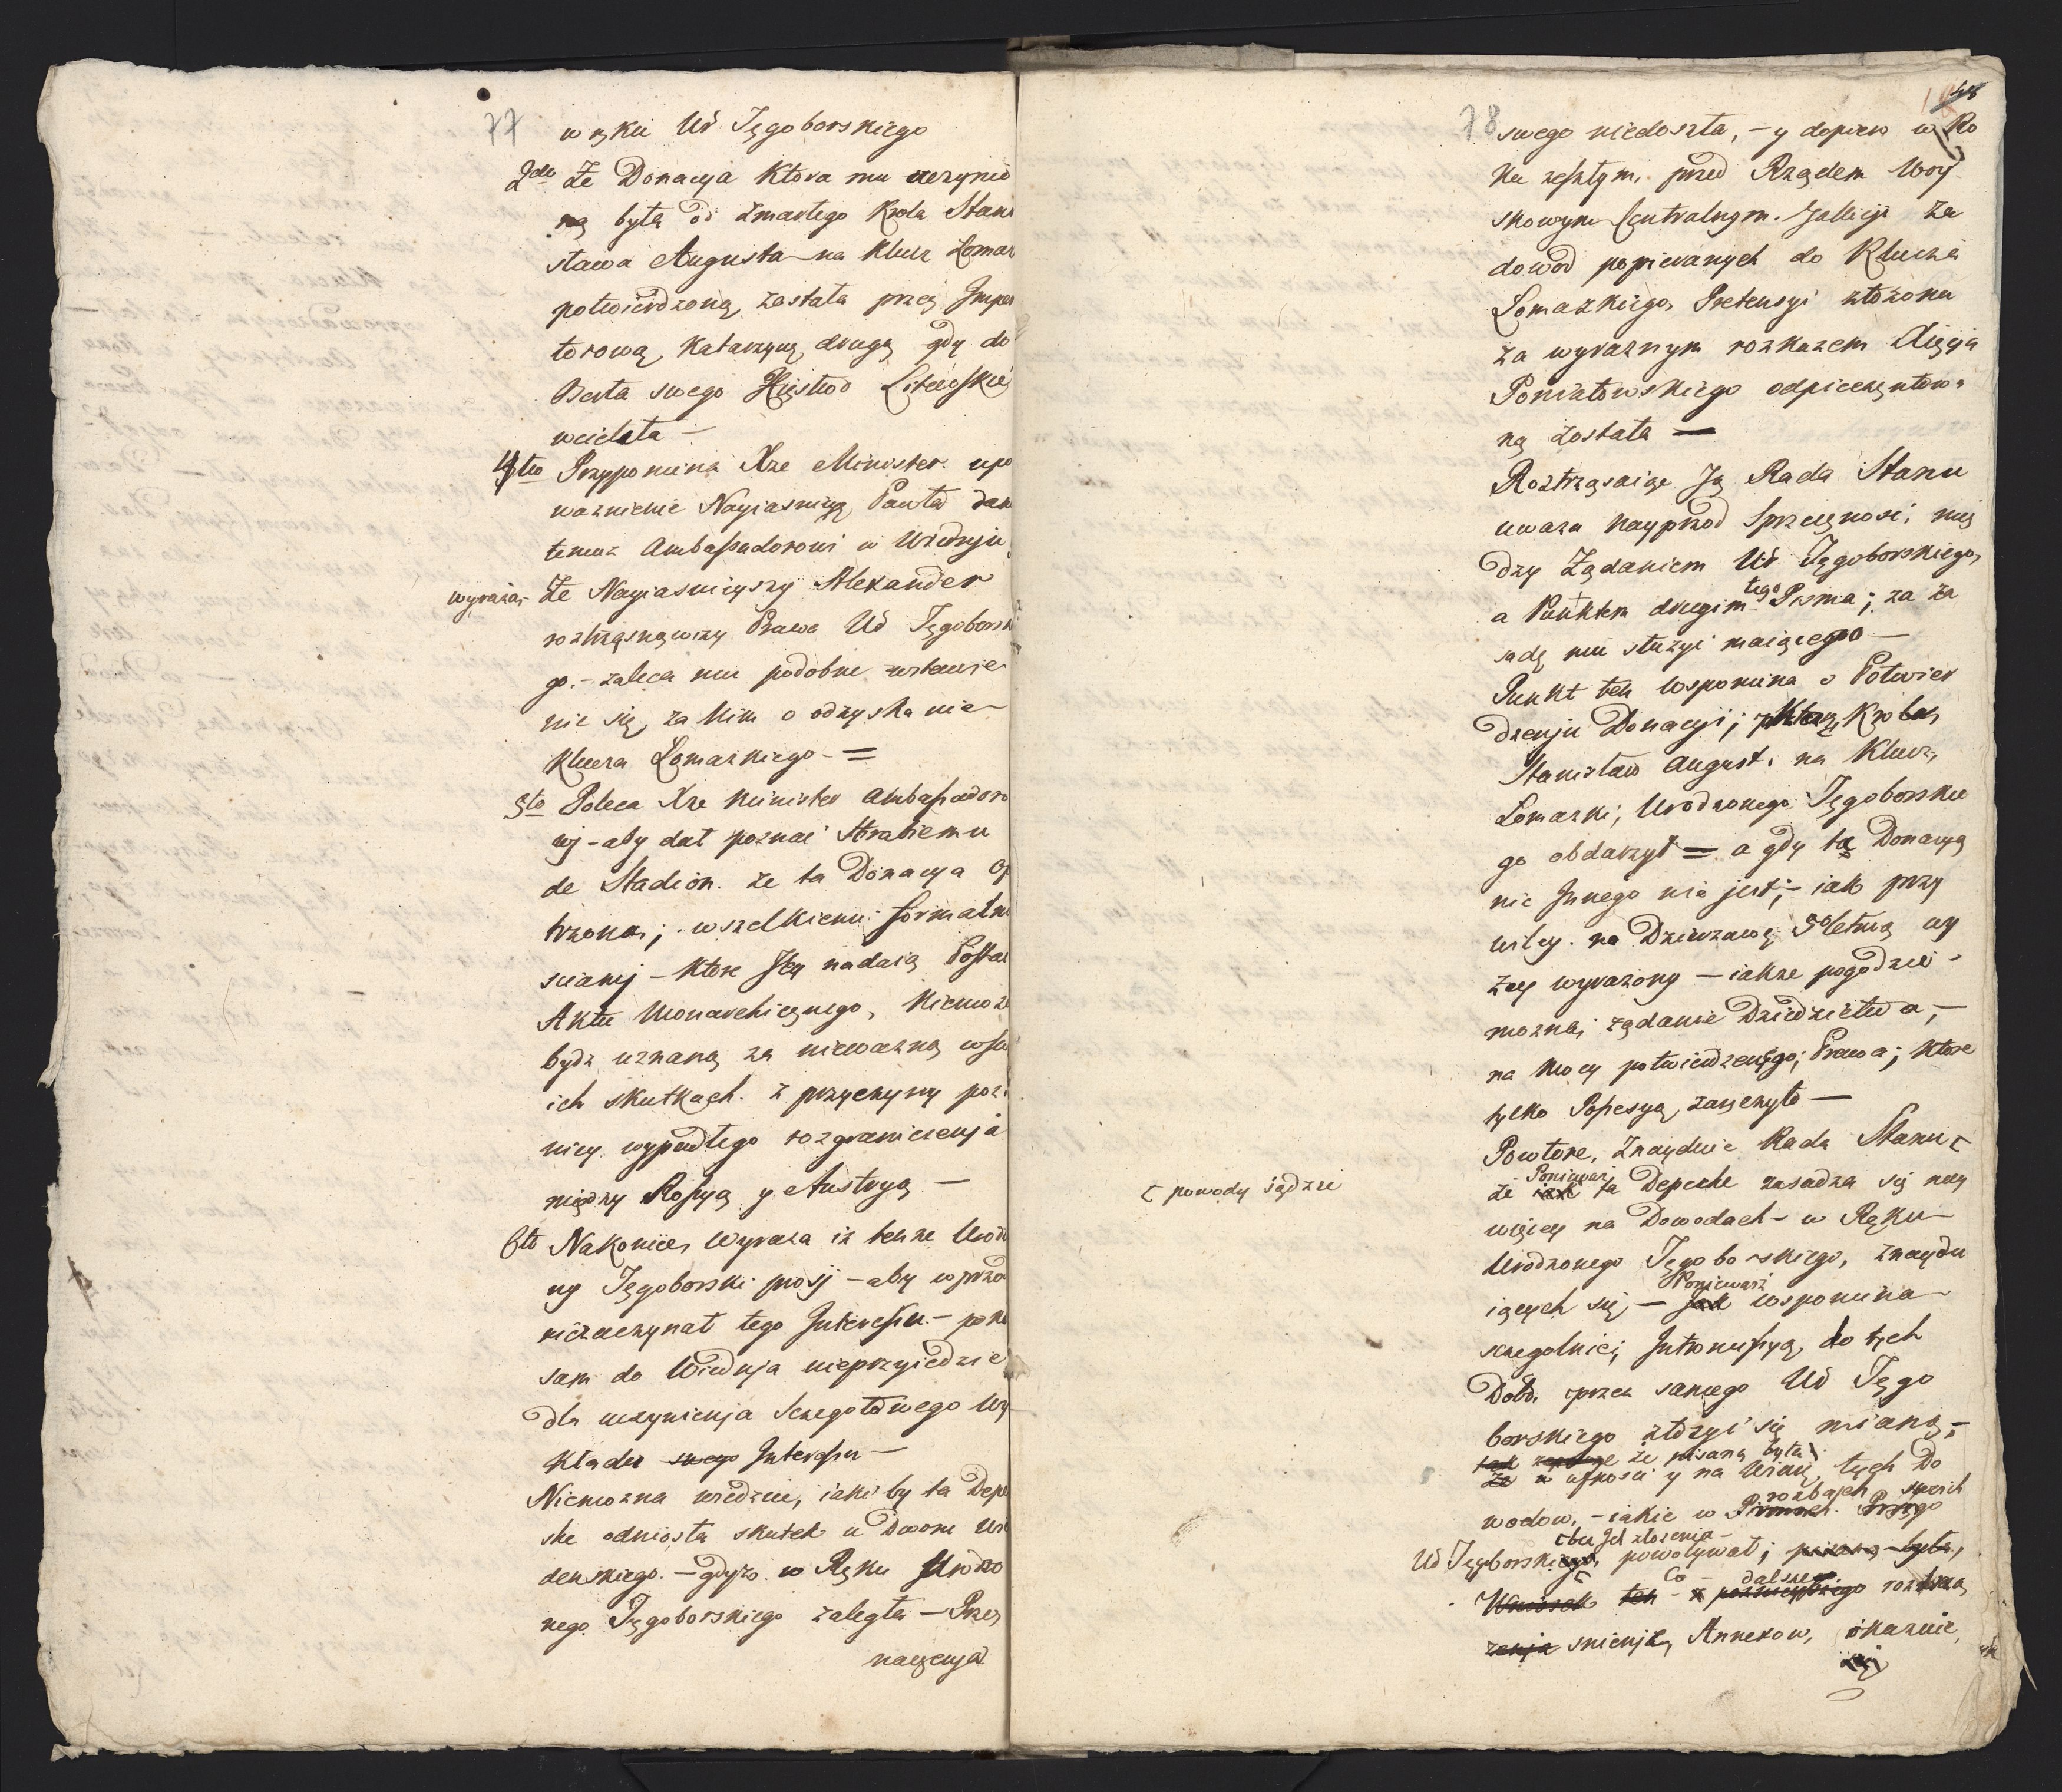 77
w ręku Ur Tęgoborskiego
2do Że Donacya Ktora mu uczynio
na była od zmarłego Krola Stani
sława Augusta na Klucz Łomaz
potwierdzoną została przez Impera
torową Katarzyną drugą gdy do
Berła swego Xięstwo Litewskie
wcieliła —
4to Przypomina Xże Minister upo
ważnienie Nayiasnieyszego Pawła dane
temuż Ambassadorowi w Wiedniu
wyraża, Że Nayiasnieyszy Alexander
roztrząsnąwszy Prawa Ur Tęgoborskie
go. – zaleca mu podobne wstawie
nie się za Nim o odzyskanie
Klucza Łomazkiego – =
5to Poleca Xże Minister Ambassadoro
wj – aby dał poznać Hrabiemu
de Stadion. że ta Donacya Opa
trzona; wszelkiemi formalno
sciamj – Ktore Jey nadaią Postać
Aktu Monarchicznego, Niemoże
bydź uznaną za nieważną w swo
ich skutkach. z przyczyny poz
niey wypadłego rozgraniczenja
między Rossyą y Austryą —
6to Nakoniec Wyraża iż tenże Urodzo
ny Tęgoborski prosj – aby wprzod
niezaczynał tego Interessu. – poki
sam do Wiednja nieprzyiedzie
dla uczynienja sczegołowego Wy
kładu swego Interessu —
Niemożna wiedzieć, iaki by ta Depe
sze odniosła skutek u Dworu Wie
denskiego. – gdyż w Ręku Urodzo
nego Tęgoborskiego zaległa — Prze
naczenja
78
48
swego niedoszła, – y dopiero w Ro
ku zeszłym, przed Rządem Woy
skowym Centralnym. Gallicyi za
dowod popieranych do Klucza
Łomazkiego, Pretensyi złożona
za wyraznym rozkazem Xięcia
Poniatowskiego odpieczętowa
ną została —
Roztrząsaiąc Ją Rada Stanu
uważa nayprzod Sprzecznosć, mię
dzy Żądaniem Ur Tęgoborskiego,
a Punktem drugim tego Pisma; za za
sadę mu służyć maiącego —
Punkt ten wspomina o Potwier
dzeniu Donacyi; Ktorą Krol
Stanisław August. na Klucz,
Łomazki, Urodzonego Tęgoborskie
go obdarzył = a gdy ta Donacya
nic Innego nie jest; – iak przy
wiley. na Dzierżawę 50letnią wy
żey wyrażony — iakże pogodzić
można; żądanie Dziedzictwa, –
na Mocy potwierdzonego; Prawa; Ktore
tylko Possesyą zaręczyło —
Powtore, Znayduie Rada Stanu
[ powody sądzić
że Ponieważ ta Depesze zasadza się nay
więcey na Dowodach – w Ręku
Urodzonego Tęgoborskiego, znaydu
iących się, — Ponieważ wspomina
sczegolniey Intromissyą, do tych
Dobr. przez samego Ur Tęgo
borskiego złożyć się mianą, –
że pisaną była
w ufnosci y na Wiarę, tych Do
wodow, – iakie w rozbaych swoich
bez Jch złożenia –
Ur Tęgoborski powoływał; pisaną była,
Wniosek ten Co – z dalszego roztrzą
snienja, Annexow, okaznie